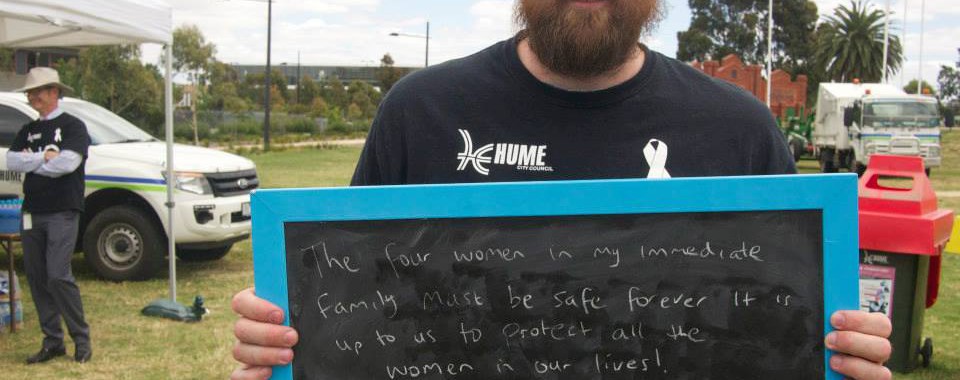 HUME
CITY COUNCIL
HUME
The four women in my immediate
family must be safe forever It is
up to us to protect all the
women in our lives!